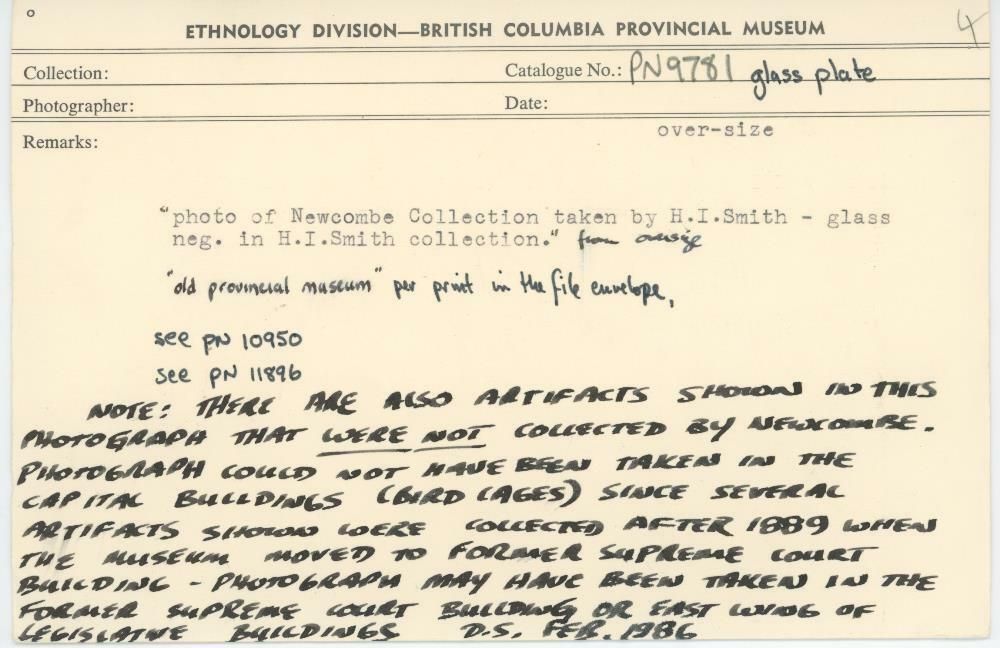 4
ETHNOLOGY DIVISION—BRITISH COLUMBIA PROVINCIAL MUSEUM
Collection: Catalogue No.: PN9781 glass plate
Photographer: Date:
Remarks: over-size
"photo of Newcombe Collection taken by H.I.Smith - glass
neg. in H.I.Smith collection." from
"old provincial museum" per print in the file envelope,
see PN 10950
see PN 11896
NOTE: THERE ARE ALSO ARTIFACTS SHOWN IN THIS
PHOTOGRAPH THAT WERE NOT COLLECTED BY NEWCOMBE.
PHOTOGRAPH COULD NOT HAVE BEEN TAKEN IN THE
CAPITAL BUILDINGS (BIRD CAGES) SINCE SEVERAL
ARTIFACTS SHOWN WERE COLLECTED AFTER 1889 WHEN
THE MUSEUM MOVED TO FORMER SUPREME COURT
BUILDING - PHOTOGRAPH MAY HAVE BEEN TAKEN IN THE
FORMER SUPREME COURT BUILDING OR EAST WING OF
LEGISLATIVE BUILDINGS D.S. FEB. 1986